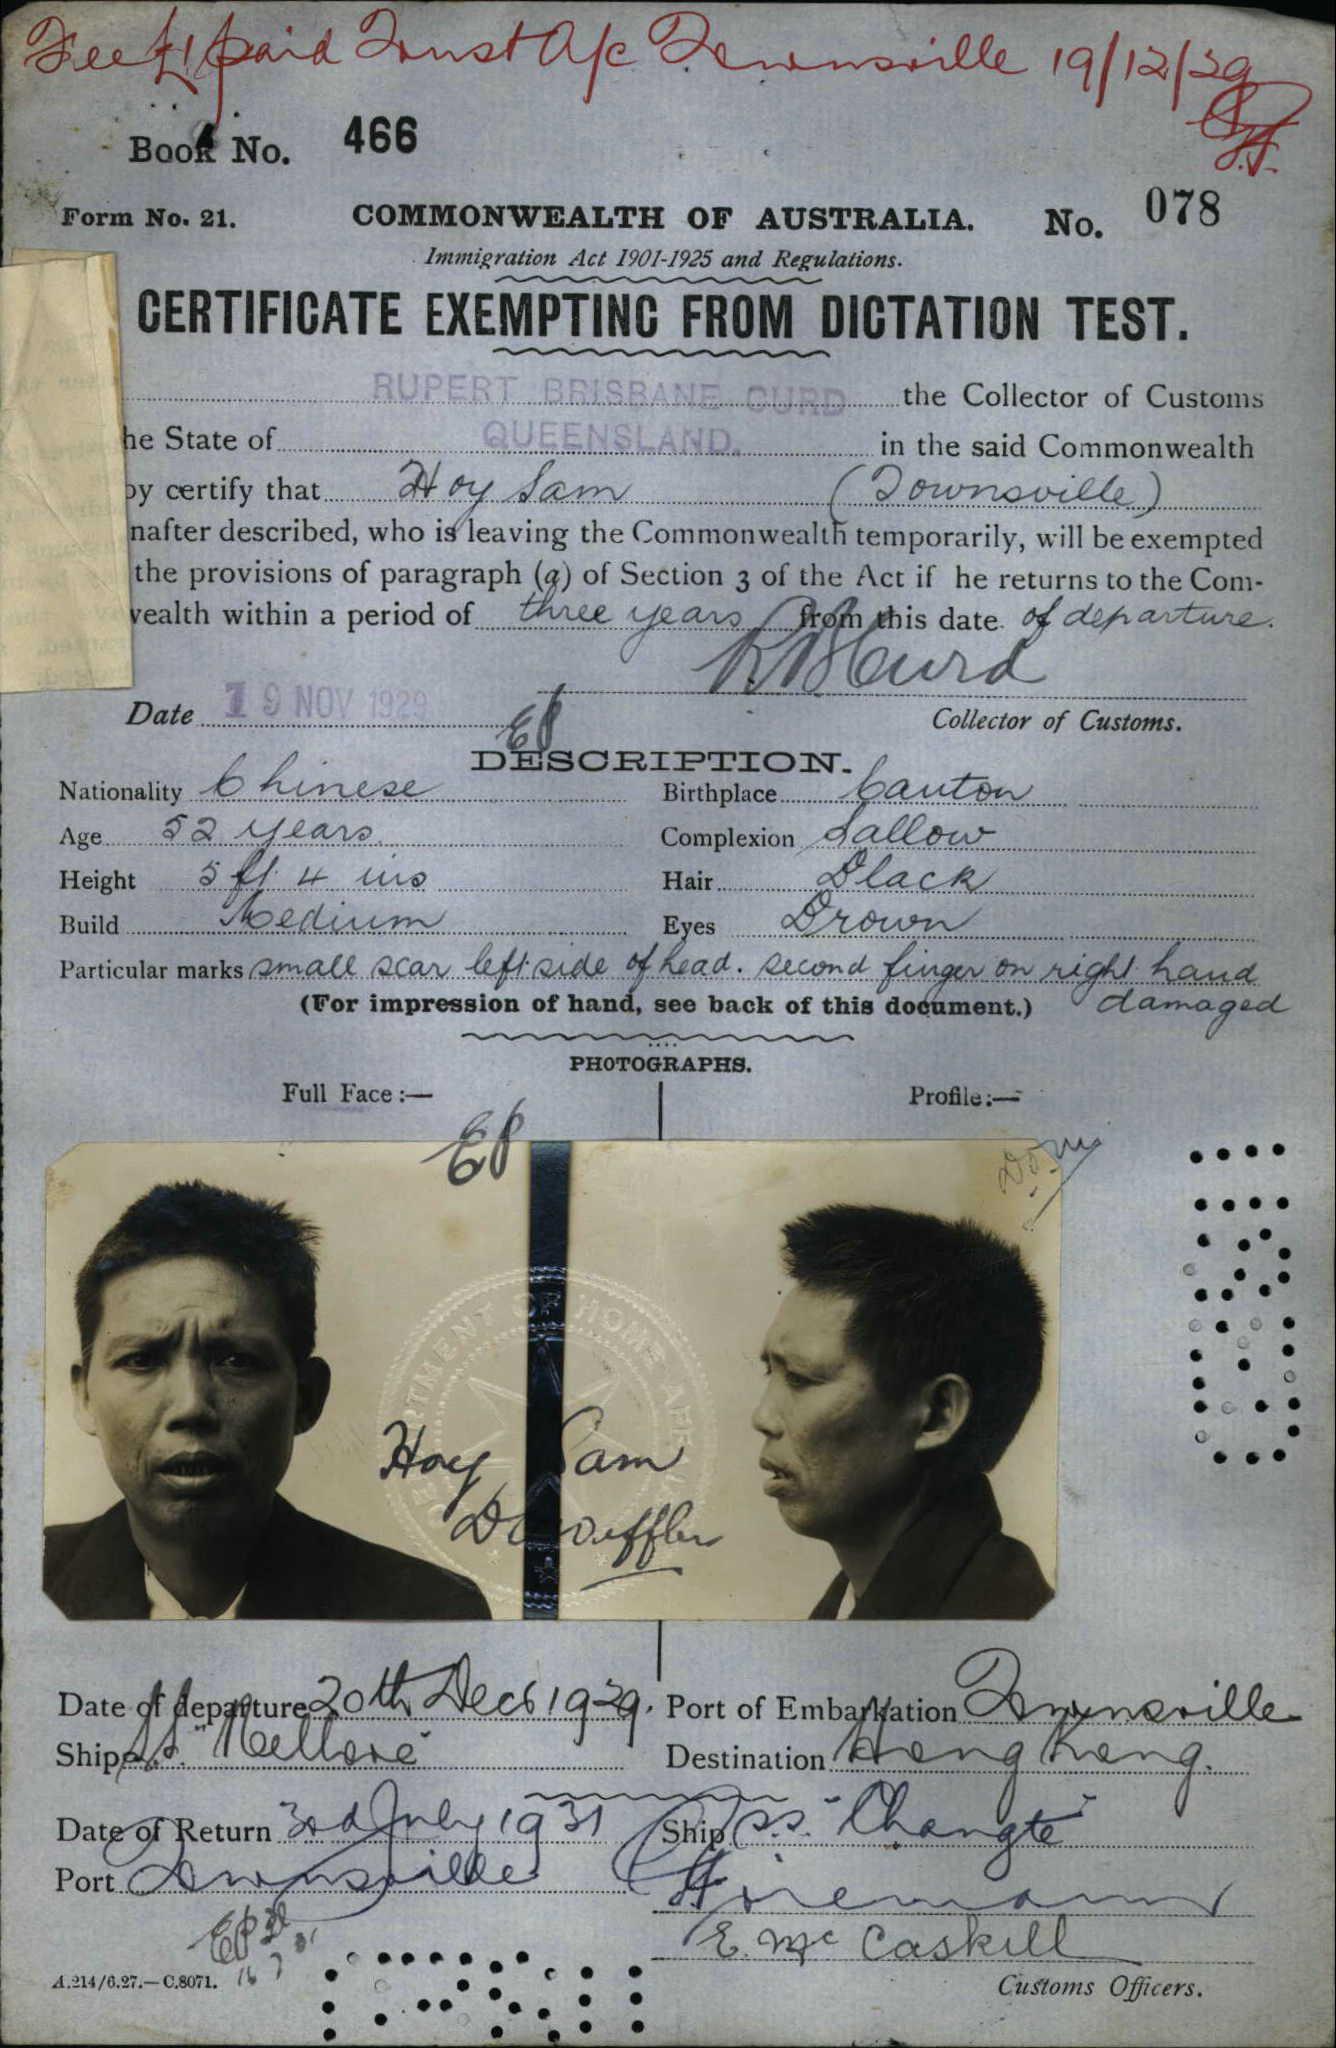 Fee £1 paid Trust A/c Townsville 19/12/29
Book No. 466
Form No. 21. COMMONWEALTH OF AUSTRALIA. No. 078
Immigration Act 1901-1925 and Regulations.
CERTIFICATE EXEMPTING FROM DICTATION TEST.
RUPERT BRISBANE CURD the Collector of Customs
he State of QUEENSLAND. in the said Commonwealth
by certify that Hoy Sam (Townsville)
nafter described, who is leaving the Commonwealth temporarily, will be exempted
the provisions of paragraph (a) of Section 3 of the Act if he returns to the Com-
wealth within a period of three years from this date of departure.
R B Curd
Date 19 NOV 1929 Collector of Customs.
EP
DESCRIPTION.
Nationality Chinese Birthplace Canton
Age 52 years. Complexion Sallow
Height 5 ft 4 ins Hair Black
Build Medium Eyes Brown
Particular marks small scar left side of head. second finger on right hand
(For impression of hand, see back of this document.) damaged
PHOTOGRAPHS.
Full Face :— Profile :—
EP
DEPARTMENT OF HOME AFFAIRS
Hoy Sam
Date of departure 20th Dec 1929. Port of Embarkation Townsville
Ship S.S. "Nellore" Destination Hong Kong.
Date of Return 3rd July 1931 Ship S.S. "Changte"
Port Townsville
E. McCaskill
EP
A.214/6.27.—C.8071. Customs Officers.